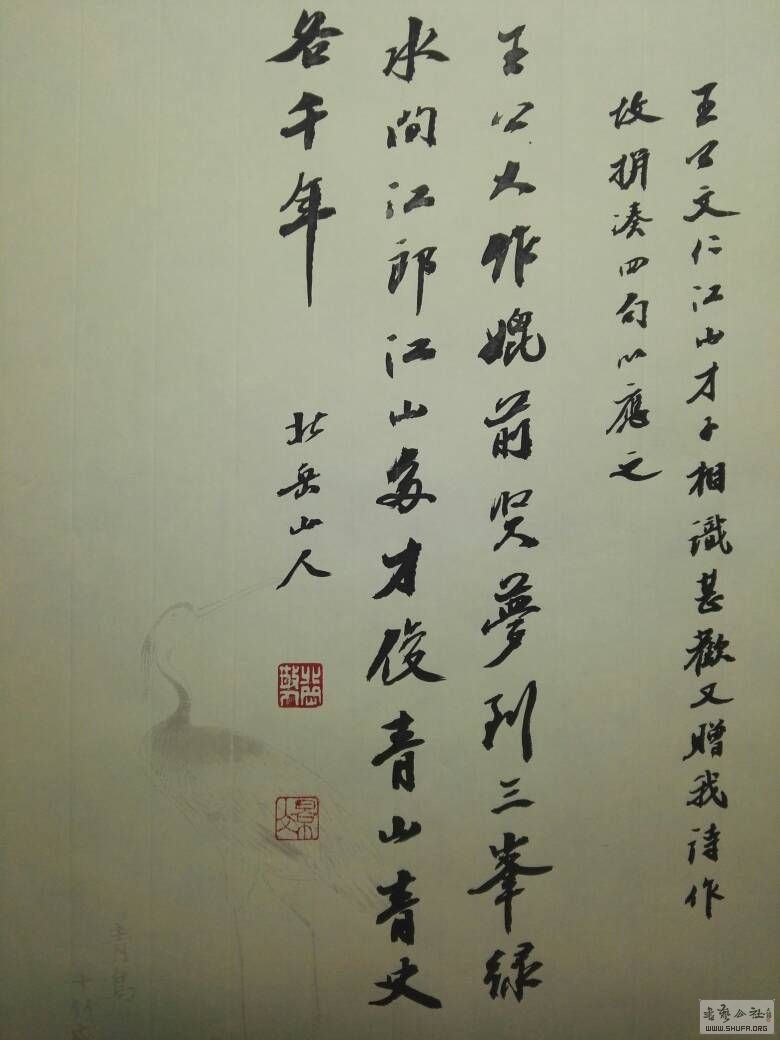 王公文仁江山才子相識甚歡又贈我詩作
故拼湊四句以應之
王公大作媲前贤夢到三峯緑
水间江郎江山多才俊青山青史
各千年
北岳山人
青鳥
WWW.SHUFA.ORG